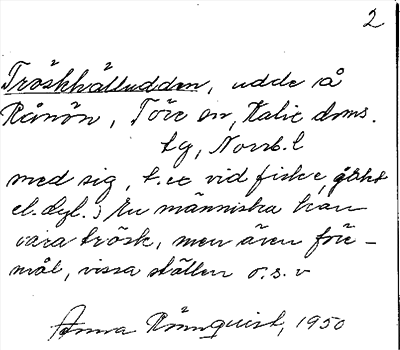 2
Tröskhälludden, udde å
Rånön, Töre sn, Kalix doms.
tg, Norrb. l
med sig, t. ex vid fiske, jakt
el. dyl.) En människa kan
vara trösk, men även före-
mål, vissa ställen o. s. v
Anna Rönnquist, 1950